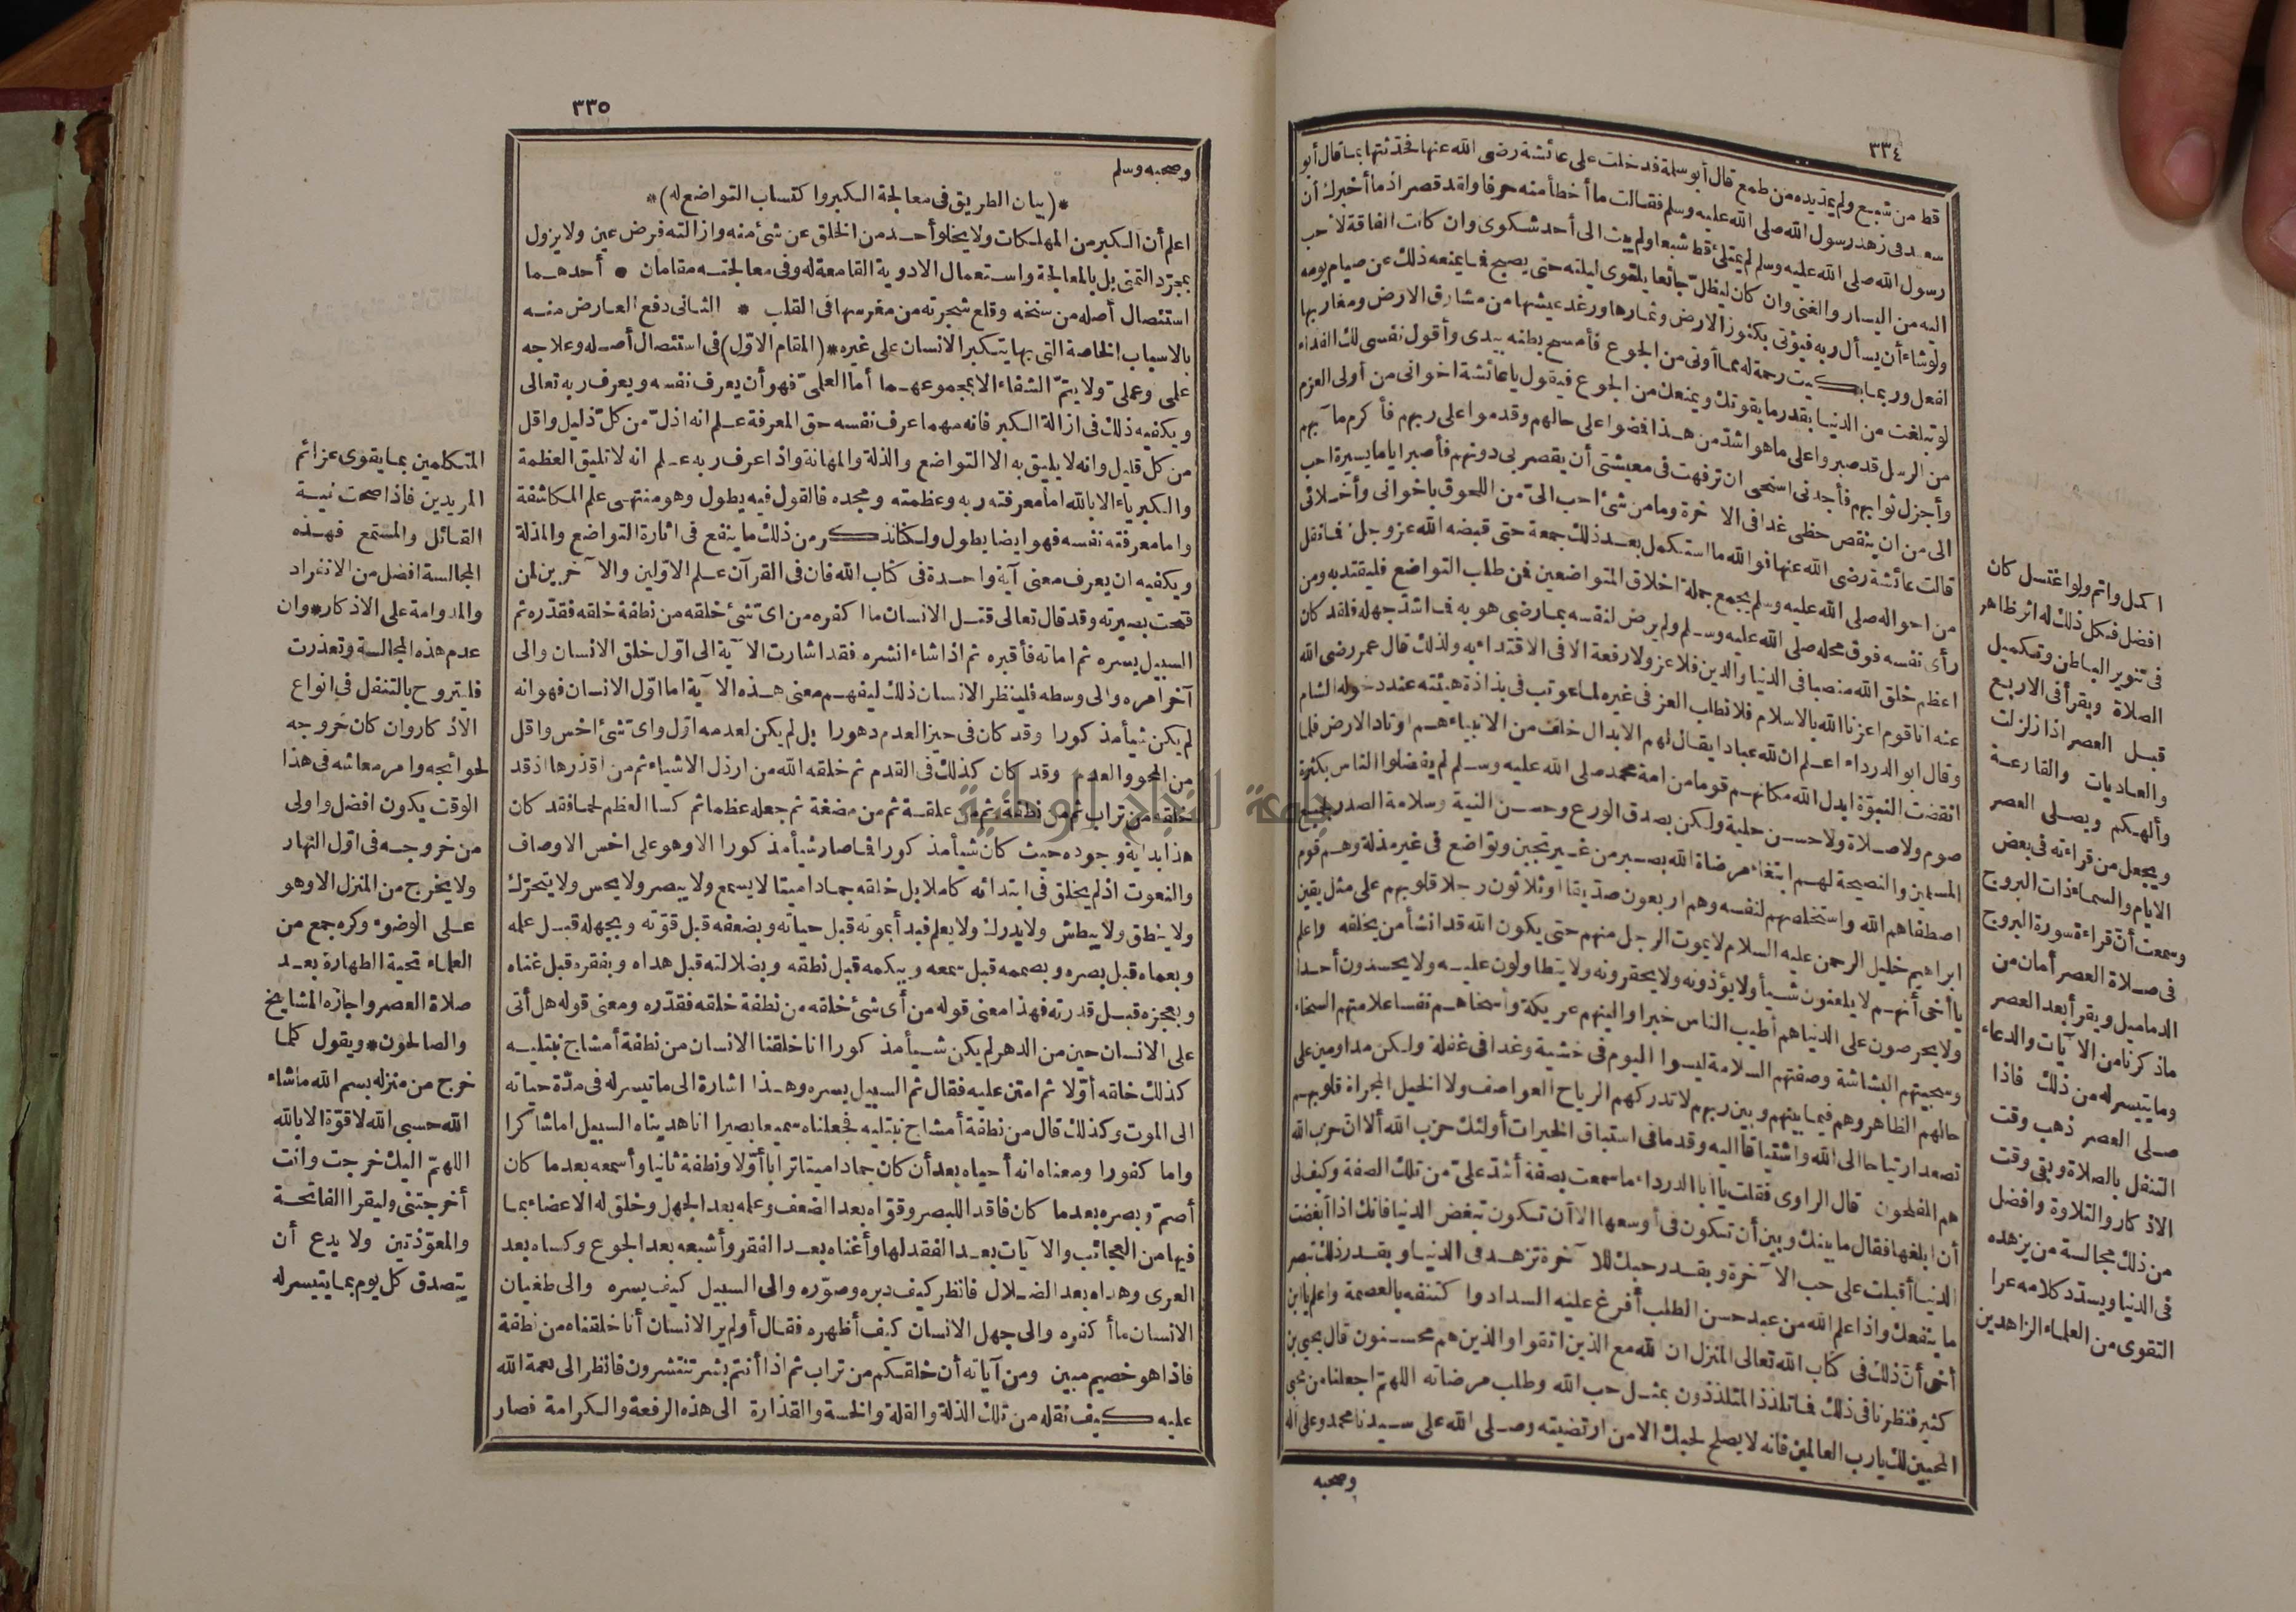 ٣٣٤
قط من شبع ولم يمدّيده من طمع قال أبو سلمة فدخلت على عائشة رضى الله عنها فحدّثتها بما قال أبو
سعيد فى زهد رسول الله صلى الله عليه وسلم فقالت ما أخطأ منه حرفا ولقد قصر اذ ما أخبرك أن
رسول الله صلى الله عليه وسلم لم يمتلئ قط شبعا ولم يبث الى أحد شكوى وان كانت الفاقة لأحب
اليه من اليسار والغنى وان كان ليظلّ جائعا يلتوى ليلته حتى يصبح فما يمنعه ذلك عن صيام يومه
ولو شاء أن يسأل ربه فيؤتى بكنوز الارض وثمارها ورغد عيشها من مشارق الارض ومغاربها
لفعل وربما بكيت رحمة له مما أوتى من الجوع فأمسح بطنه بيدى وأقول نفسى لك الفداء
لو تبلغت من الدنيا بقدر ما يقوتك ويمنعك من الجوع فيقول يا عائشة اخوانى من أولى العزم
من الرسل قد صبروا على ما هو اشدّ من هذا فمضوا على حالهم وقدموا على ربهم فأكرم مآبهم
وأجزل ثوابهم فأجدنى استحى ان ترفهت فى معيشتى أن يقصر بى دونهم فأصبر اياما يسيرة احب
الى من ان ينقص حظى غدا فى الآخرة وما من شئ احب الىّ من اللحوق باخوانى وأخلائى
قالت عائشة رضى الله عنها فوالله ما استكمل بعد ذلك جمعة حتى قبضه الله عز وجل فما نقل
من احواله صلى الله عليه وسلم يجمع جملة اخلاق المتواضعين فمن طلب التواضع فليقتد به ومن
رأى نفسه فوق محله صلى الله عليه وسلم ولم يرض لنفسه بما رضى هو به فما اشدّ جهله فلقد كان
اعظم خلق الله منصبا فى الدنيا والدين فلا عز ولا رفعة الا فى الاقتداء به ولذلك قال عمر رضى الله
عنه انا قوم اعزنا الله بالاسلام فلا نطلب العز فى غيره لما عوتب فى بذاذة هيئته عند دخوله الشام
وقال ابو الدرداء اعلم ان لله عبادا يقال لهم الابدال خلف من الانبياء هم اوتاد الارض فلما
انقضت النبوّة ابدل الله مكانهم قوما من امة محمد صلى الله عليه وسلم لم يفضلوا الناس بكثرة
صوم ولا صلاة ولا حسن حلية ولكن بصدق الورع وحسن النية وسلامة الصدر لجميع
المسلمين والنصيحة لهم ابتغاء مرضاة الله بصبر من غير تجبن وتواضع فى غير مذلة وهم قوم
اصطفاهم الله واستخلصهم لنفسه وهم اربعون صدّيقا او ثلاثون رجلا قلوبهم على مثل يقين
ابراهيم خليل الرحمن عليه السلام لا يموت الرجل منهم حتى يكون الله قد انشأ من يخلفه واعلم
يا أخى أنهم لا يلعنون شيأ ولا يؤذونه ولا يحقرونه ولا يتطاولون عليه ولا يحسدون أحدا
ولا يحرصون على الدنيا هم أطيب الناس خبرا والينهم عريكة وأسخاهم نفسا علامتهم السخاء
وسجيتهم البشاشة وصفتهم السلامة ليسوا اليوم فى خشية وغدا فى غفلة ولكن مداومين على
حالهم الظاهر وهم فيما بينهم وبين ربهم لا تدركهم الرياح العواصف ولا الخيل المجراة قلوبهم
تصعد ارتياحا الى الله واشتياقا اليه وقدما فى استباق الخيرات أولئك حزب الله ألا ان حزب الله
هم المفلحون قال الراوى فقلت يا أبا الدرداء ما سمعت بصفة أشدّ علىّ من تلك الصفة وكيف لى
أن ابلغها فقال ما بينك وبين أن تكون فى أوسعها الا أن تكون تبغض الدنيا فانك اذا أبغضت
الدنيا أقبلت على حب الآخرة وبقدر حبك للآخرة تزهد فى الدنيا وبقدر ذلك تبصر
ما ينفعك واذا علم الله من عبد حسن الطلب أفرغ عليه السداد واكتنفه بالعصمة واعلم يا ابن
أخى أنّ ذلك فى كتاب الله تعالى المنزل ان لله مع الذين اتقوا والذين هم محسنون قال يحيى بن
كثير فنظرنا فى ذلك فما تلذذ المتلذذون بمثل حب الله وطلب مرضاته اللهمّ اجعلنا من محبى
المحبين لك يا رب العالمين فانه لا يصلح لحبك الا من ارتضيته وصلى الله على سيدنا محمد وعلى آله
وصحبه
اكمل واتم ولو اغتسل كان
افضل فكل ذلك له اثر ظاهر
فى تنوير الباطن وتكميل
الصلاة ويقرأ فى الاربع
قبل العصر اذا زلزلت
والعاديات والقارعة
وألهكم ويصلى العصر
ويجعل من قراءته فى بعض
الايام والسماء ذات البروج
وسمعت أنّ قراءة سورة البروج
فى صلاة العصر أمان من
الدماميل ويقرأ بعد العصر
ما ذكرنا من الآيات والدعاء
وما يتيسر له من ذلك فاذا
صلى العصر ذهب وقت
التنفل بالصلاة وبقى وقت
الاذكار والتلاوة وافضل
من ذلك مجالسة من يزهده
فى الدنيا ويسدّد كلامه عرا
التقوى من العلماء الزاهدين
٣٣٥
وصحبه وسلم
*(بيان الطريق فى معالجة الكبر واكتساب التواضع له)*
اعلم أن الكبر من المهلكات ولا يخلو أحد من الخلق عن شئ منه وازالته فرض عين ولا يزول
بمجرّد التمنى بل بالمعالجة واستعمال الادوية القامعة له وفى معالجته مقامان * أحدهما
استئصال أصله من سنخه وقلع شجرته من مغرسها فى القلب * الثانى دفع العارض منه
بالاسباب الخاصة التى بها يتكبر الانسان على غيره *(المقام الاوّل) فى استئصال أصله وعلاجه
علمى وعملىّ ولا يتمّ الشفاء الا بمجموعهما أما العلمىّ فهو أن يعرف نفسه ويعرف ربه تعالى
ويكفيه ذلك فى ازالة الكبر فانه مهما عرف نفسه حق المعرفة علم انه اذلّ من كلّ ذليل واقل
من كل قليل وانه لا يليق به الا التواضع والذلة والمهانة واذا عرف ربه علم انه لا تليق العظمة
والكبرياء الا بالله اما معرفته ربه وعظمته ومجده فالقول فيه يطول وهو منتهى علم المكاشفة
واما معرفته نفسه فهو ايضا يطول ولكنا نذكر من ذلك ما ينفع فى اثارة التواضع والمذلة
ويكفيه ان يعرف معنى آية واحدة فى كتاب الله فان فى القرآن علم الاوّلين والآخرين لمن
فتحت بصيرته وقد قال تعالى قتل الانسان ما اكفره من اى شئ خلقه من نطفة خلقه فقدّره ثم
السبيل يسره ثم اماته فأقبره ثم اذا شاء انشره فقد اشارت الآية الى اوّل خلق الانسان والى
آخر امره والى وسطه فلينظر الانسان ذلك ليفهم معنى هذه الآية اما اوّل الانسان فهو انه
لم يكن شيأ مذكورا وقد كان فى حيز العدم دهورا بل لم يكن لعدمه اوّل واى شئ اخس واقل
من المحو والعدم وقد كان كذلك فى القدم ثم خلقه الله من ارذل الاشياء ثم من اقذرها اذ قد
خلقه من تراب ثم من نطفة ثم من علقة ثم من مضغة ثم جعله عظما ثم كسا العظم لحما فقد كان
هذا بداية وجوده حيث كان شيأ مذكورا فما صار شيأ مذكورا الا وهو على اخس الاوصاف
والنعوت اذ لم يخلق فى ابتدائه كاملا بل خلقه جمادا ميتا لا يسمع ولا يبصر ولا يحس ولا يتحرّك
ولا ينطق ولا يبطش ولا يدرك ولا يعلم فبدأ بموته قبل حياته وبضعفه قبل قوّته وبجهله قبل علمه
وبعماه قبل بصره وبصممه قبل سمعه وببكمه قبل نطقه وبضلالته قبل هداه وبفقره قبل غناه
وبعجزه قبل قدرته فهذا معنى قوله من أى شئ خلقه من نطفة خلقه فقدّره ومعنى قوله هل أتى
على الانسان حين من الدهر لم يكن شيأ مذكورا انا خلقنا الانسان من نطفة أمشاج نبتليه
كذلك خلقه أوّلا ثم امتن عليه فقال ثم السبيل يسره وهذا اشارة الى ما تيسر له فى مدّة حياته
الى الموت وكذلك قال من نطفة أمشاج نبتليه فجعلناه سميعا بصيرا انا هديناه السبيل اما شاكرا
واما كفورا ومعناه انه أحياه بعد أن كان جمادا ميتا ترابا أوّلا ونطفة ثانيا وأسمعه بعد ما كان
أصمّ وبصره بعد ما كان فاقدا للبصر وقوّاه بعد الضعف وعلمه بعد الجهل وخلق له الاعضاء بما
فيها من العجائب والآيات بعد الفقد لها وأغناه بعد الفقر وأشبعه بعد الجوع وكساه بعد
العرى وهداه بعد الضلال فانظر كيف دبره وصوّره والى السبيل كيف يسره والى طغيان
الانسان ما أكفره والى جهل الانسان كيف أظهره فقال أولم ير الانسان أنا خلقناه من نطفة
فاذا هو خصيم مبين ومن آياته أن خلقكم من تراب ثم اذا أنتم بشر تنتشرون فانظر الى نعمة الله
عليه كيف نقله من تلك الذلة والقلة والخسة والقذارة الى هذه الرفعة والكرامة فصار
المتكلمين بما يقوى عزائم
المريدين فاذا صحت نية
القائل والمستمع فهذه
المجالسة افضل من الانفراد
والمداومة على الاذكار*وان
عدم هذه المجالسة وتعذرت
فليتروح بالتنقل فى انواع
الاذكار وان كان خروجه
لحوائجه وامر معاشه فى هذا
الوقت يكون افضل واولى
من خروجه فى اوّل النهار
ولا يخرج من المنزل الا وهو
على الوضوء وكره جمع من
العلماء تحية الطهارة بعد
صلاة العصر واجازه المشايخ
والصالحون*ويقول كلما
خرج من منزله بسم الله ما شاء
الله حسبى الله لا قوّة الا بالله
اللهمّ اليك خرجت وانت
أخرجتنى وليقرأ الفاتحة
والمعوّذتين ولا يدع أن
يتصدق كل يوم بما يتيسر له
جامعة النجاح الوطنية